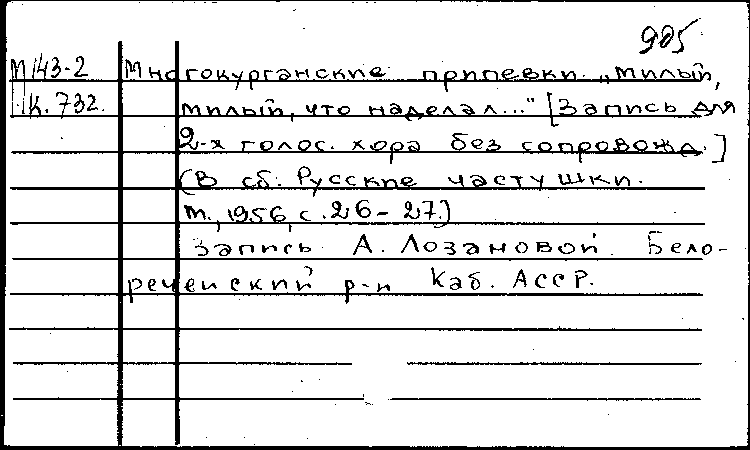 905
М 143-2 Многокурганские припевки „Милый,
К.732. милый, что наделал..." [Запись для
2-х голос. хора без сопровожд.]
(В сб: Русские частушки.
М., 1956, с. 26-27.)
Запись А. Лозановой. Бело-
реченский р-н Каб. АССР.